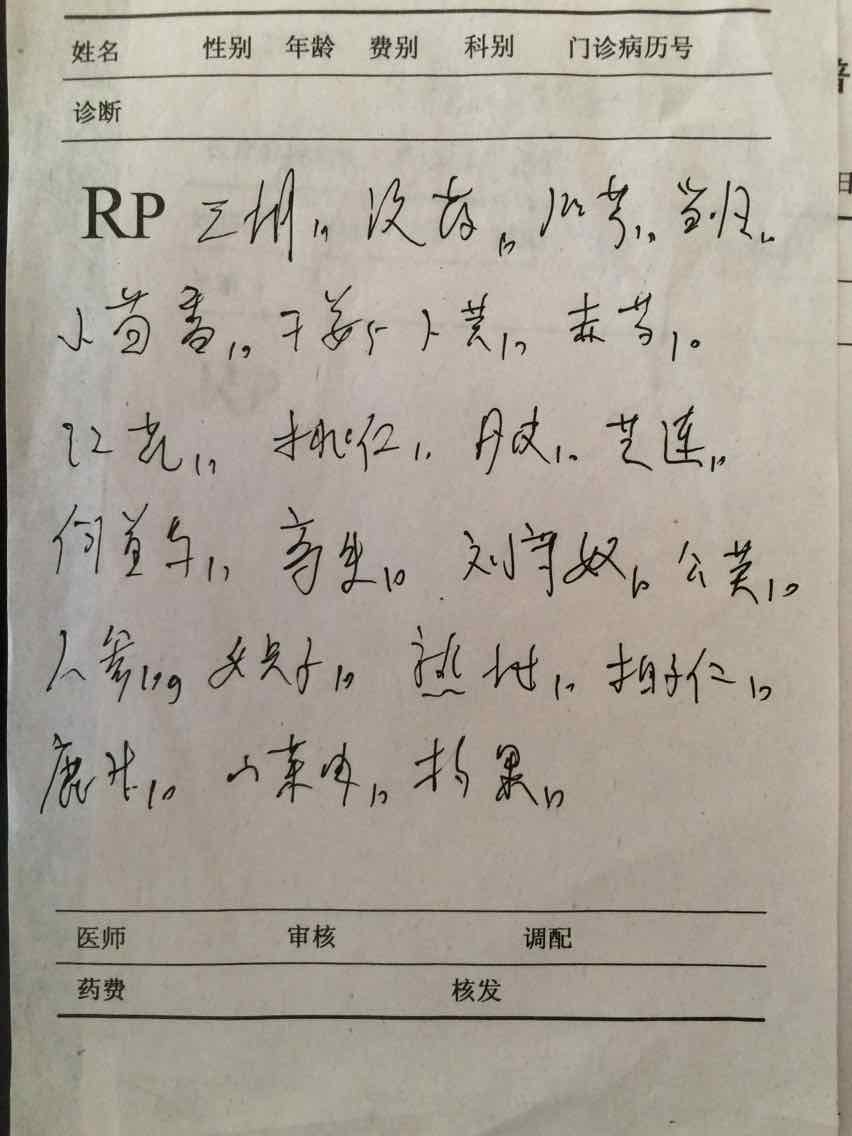 姓名 性别 年龄 费别 科别 门诊病历号
诊断
RP 三棚10 没药10 川芎10 当归10
小茴香10 干姜5 卜荒10 赤芍10
红花10 桃仁10 丹皮10 芝连10
何首乌10 寄生10 刘寄奴10 公英10
人参10g 女贞子10 熟地10 柏子仁10
鹿"10 山茱肉10 枸果10
医师 审核 调配
药费 核发